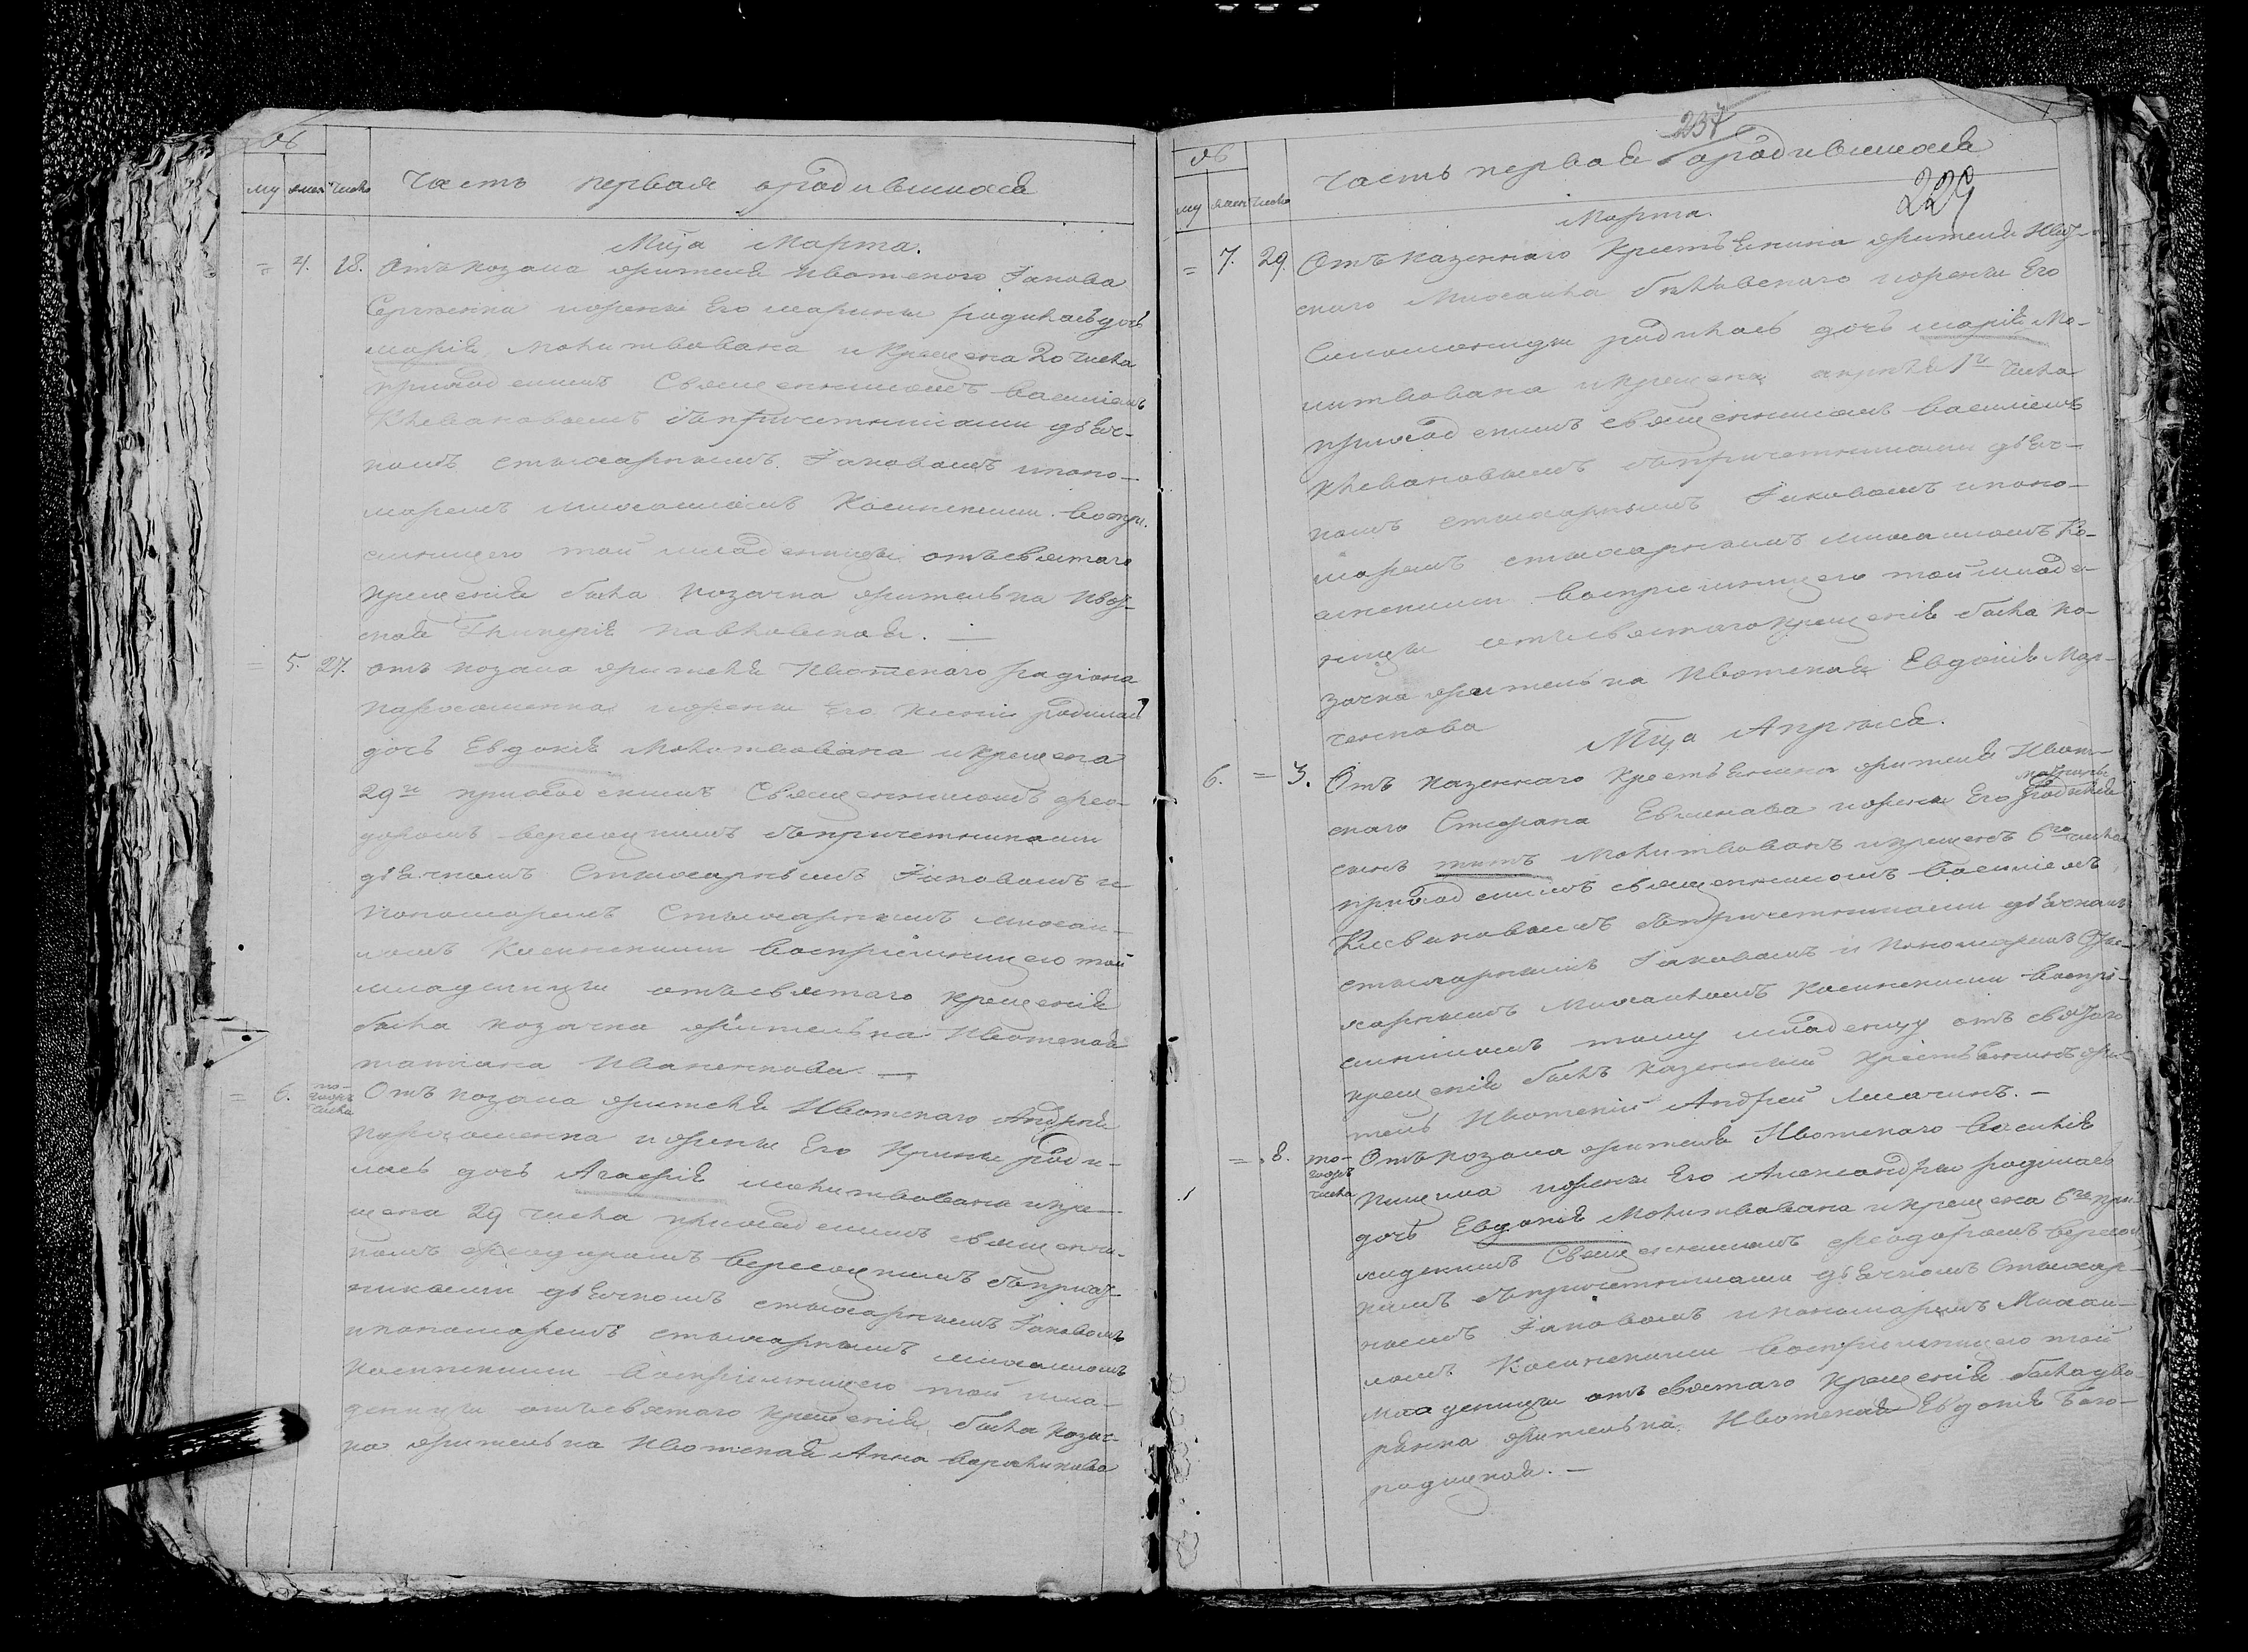 Об
му жен число Часть первая ородившихся
Мца Марта.
= 4. 18. Отъ козака жителя Ивотского Iакова
Сергиенка ижены Его марины родиласъ дочь
марiя молитвована и крещена 20 числа
приходскимъ Священникомъ василiемъ
Клевановымъ съпричетниками дьяч-
комъ стихарнымъ Iаковомъ ипоно-
маремъ михаиломъ Косинскими. воспрi-
емницею той младеницы отъсвятаго
крещенiя была козачка жителька Ивот-
ская Гликерiя Павловская. —
= 5. 27. Отъ козака жителя Ивотскаго радiона
Пархоменка ижены Его Ксенiи родилась
дочь Евдокiя Молитвована икрещена
29го приходскимъ Священникомъ фео-
доромъ верещцкимъ съпричетниками
дьячкомъ Стихарнымъ Iаковомъ и
пономаремъ Стихарнымъ михаи-
ломъ Косинскими воспрiемницею той
младеницы отъсвятаго крещенiя
была козачка жителька Ивотская
татiана Иваненкова. —
= 6. то-
гожъ
числа Отъ козака жителя Ивотскаго Андрея
Пархоменка ижены Его Ирины роди-
лась дочь Агафiя молитвована икре-
щена 29 числа приходскимъ священни-
комъ феодоромъ верещцкимъ съпричет-
никами дьячкомъ стихарнымъ Iаковомъ
ипономаремъ стихарнымъ михаиломъ
Косинскими воспрiемницею той мла-
деницы отъсвятаго крещенiя была козач-
ка жителька Ивотская Анна
237
Об
му жен число Часть первая ородившихся
229
Марта.
= 7. 29. Отъ казеннаго крестьянина жителя Ивот-
скаго Михаила ижены Его
родилась дочь марiя Мо-
литвована икрещена апреля 1го числа
приходскимъ священникомъ василiемъ
Клевановымъ съпричетниками дьяч-
комъ стихарнымъ Iаковомъ ипоно-
маремъ стихарнымъ михаиломъ Ко-
синскими воспрiемницею той младе-
ницы отъсвятагокрещенiя была ко-
зачка жителька Ивотская Евдокiя Мар-
ченкова
Мца Апреля.
6. = 3. Отъ казеннаго крестьянина жителя Ивот-
скаго Стефана ижены Его родился
сынъ титъ Молитвованъ икрещенъ 6го числа
приходскимъ священникомъ василiемъ
Клевановымъ съпричетниками дьячкомъ
стихарнымъ Iаковомъ и пономаремъ Сти-
харнымъ михаиломъ Косинскими воспрi-
емникомъ тому младенцу отъ святаго
крещенiя былъ казенный крестьянинъ жи-
тель Ивотскiй Андрей Лихачинъ. —
= 8. то-
гожъ
числа Отъ козака жителя Ивотскаго василiя
ижены Его Александры родилась
дочь Евдокiя Молитвована икрещена 6го при-
ходскимъ Священникомъ феодоромъ верещц-
кимъ съпричетниками дьячкомъ Стихар-
нымъ Iаковомъ ипономаремъ Михаи-
ломъ Косинскими воспрiемницею той
младеницы отъ святаго крещенiя быладво-
рянка жителька Ивотская Евдокiя Бого-
родицкая. —